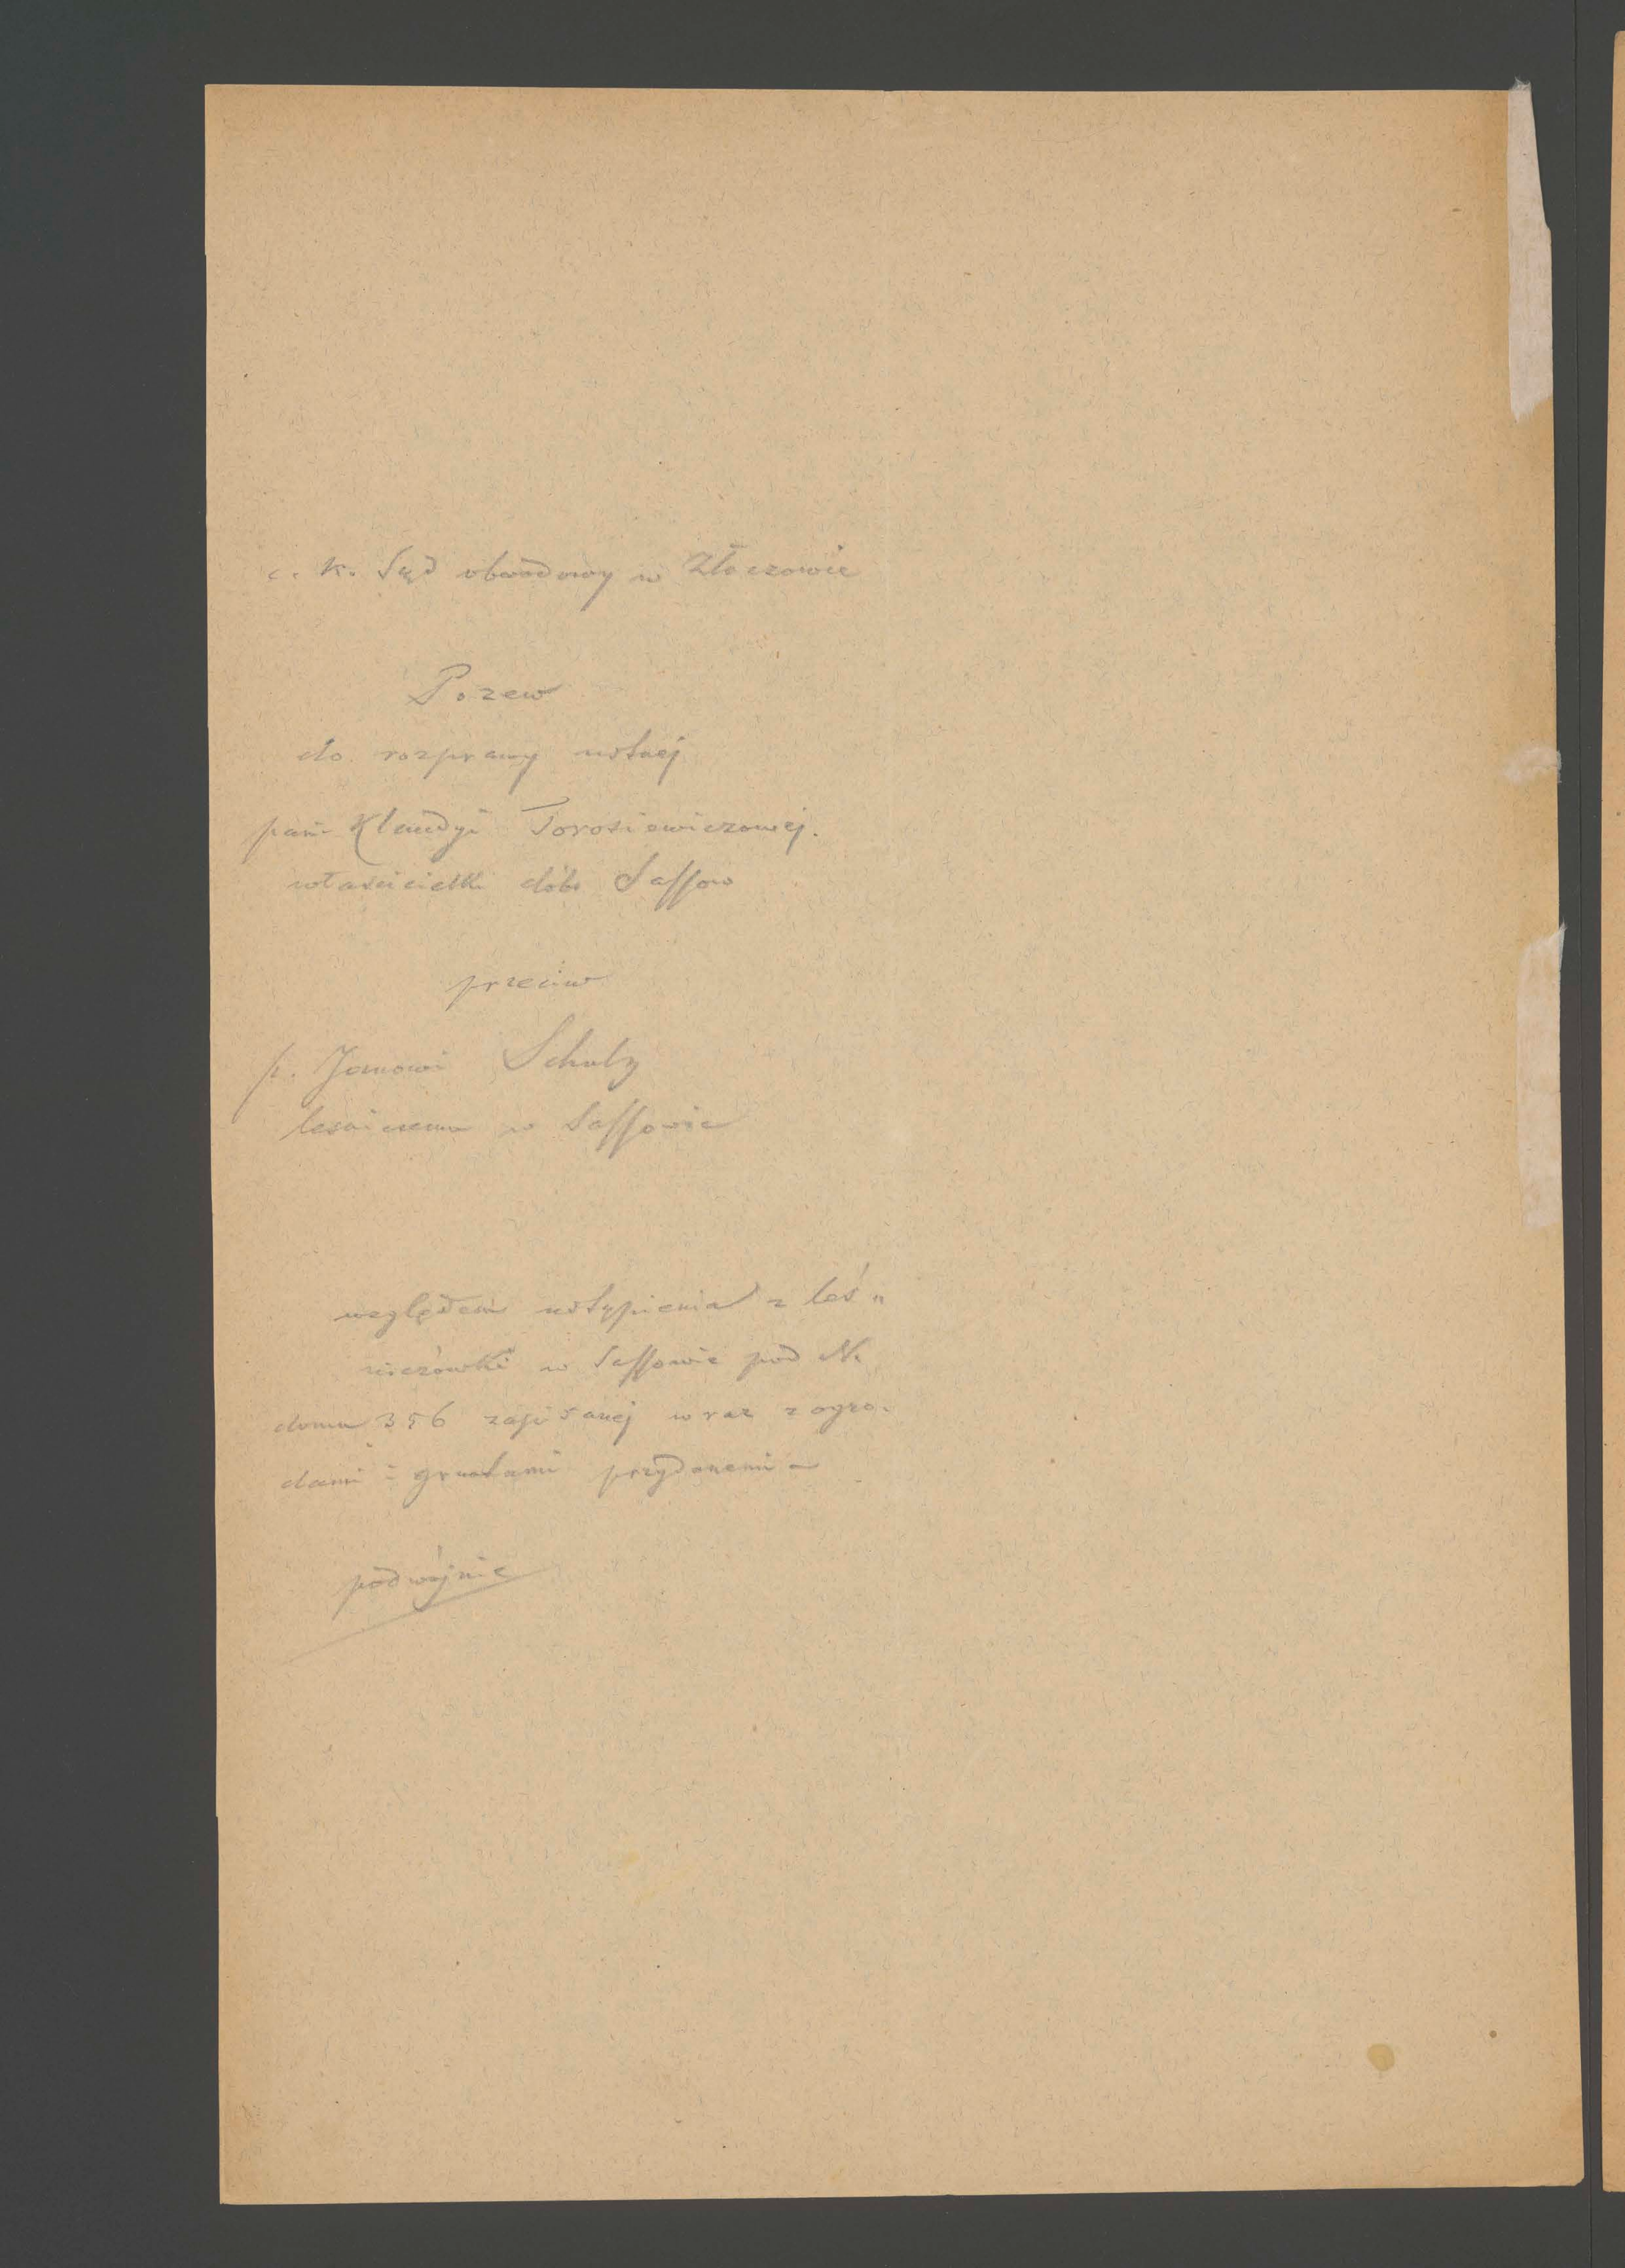 c. k. Sąd obwodowy w Złoczowie
Pozew
do rozprawy ustnej
pani Klaudyi Torosiewiczowej.
właścicielki dóbr Sassow
przeciw
p. Janowi Schulz
lesniczemu w Sassowie
względem ustąpienia z leś„
niczówki w Sassowie pod N.
domu 356 zapisanej wraz z ogro.
dami i gruntami przydanemi
podwójnie